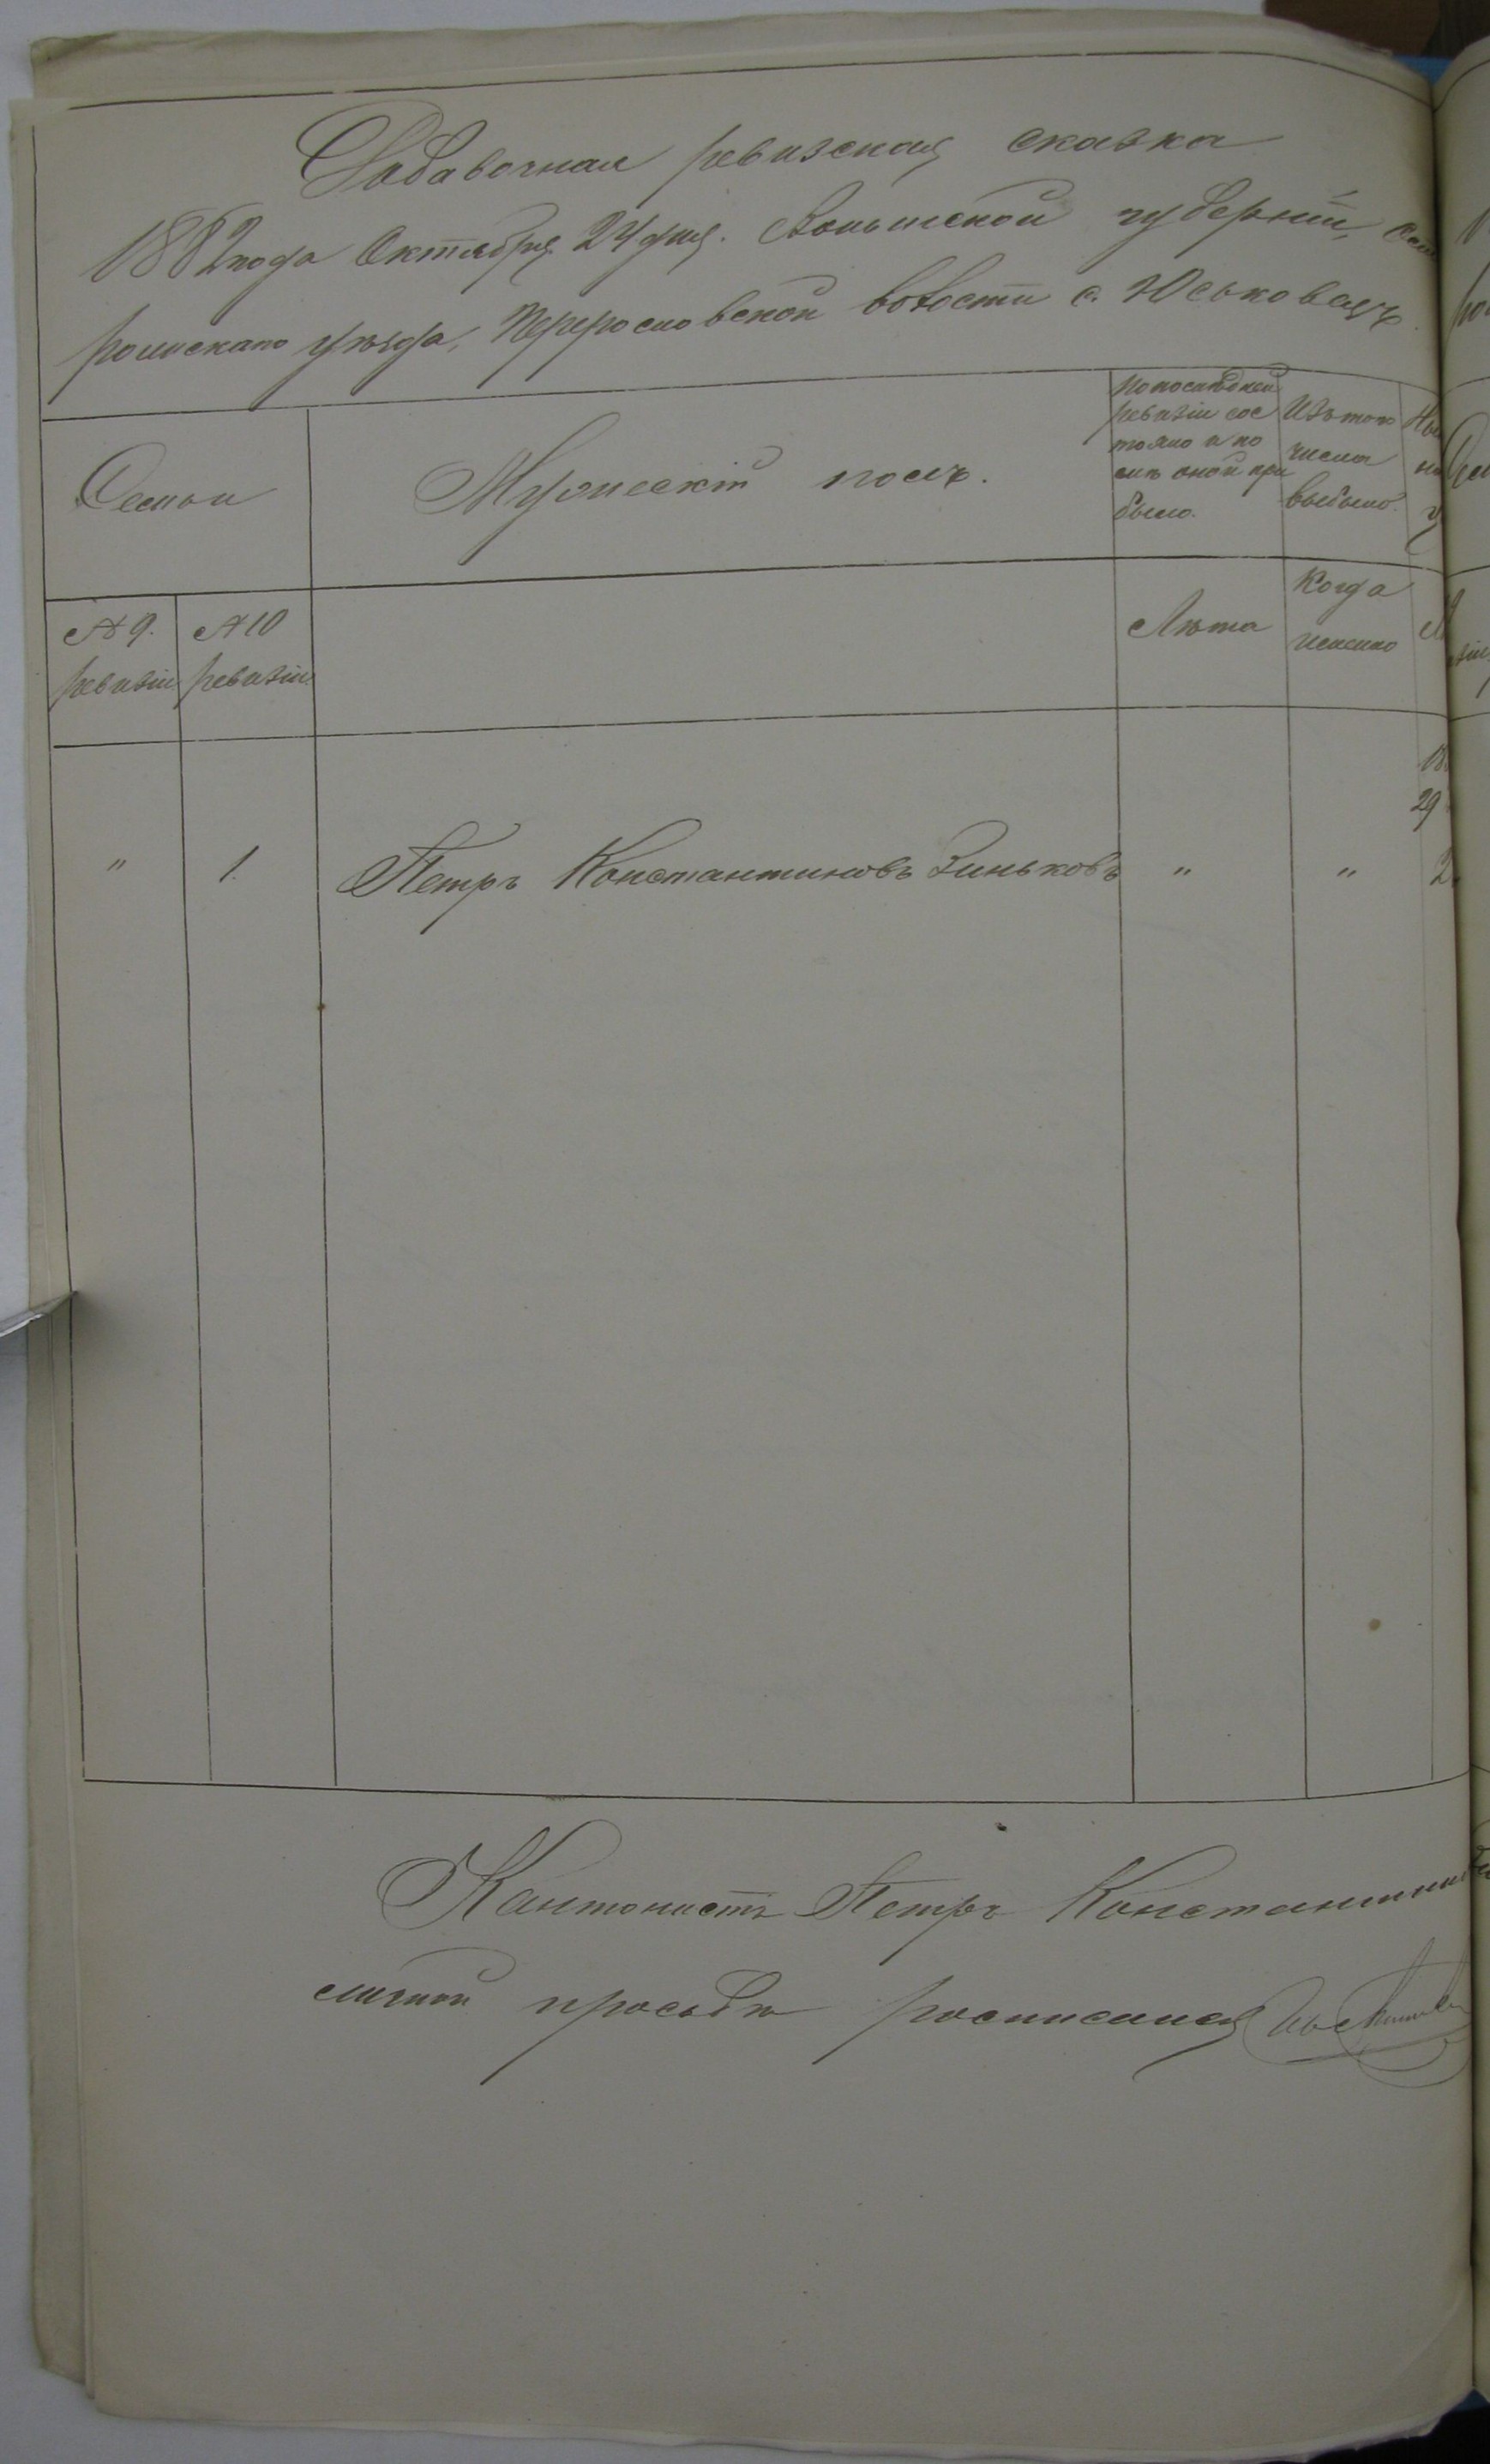 Добавочная ревизская сказка
1882 года Октября 24 дня. Волынской губерніи,
роинскаго уѣзда, Перерословской волости с. Юськовецъ.
Семьи
Мужескій полъ.
По послѣдней
ревизіи сос
тояло и по
слѣ оной при
было.
Изъ того
числа
выбыло.
№ 9.
ревизіи
№ 10
ревизіи.
Лѣта
Когда
именно
" 1. Петръ Константиновъ Зиньковъ " "
29
2
Кантонистъ Петръ
личной просьбѣ росписался